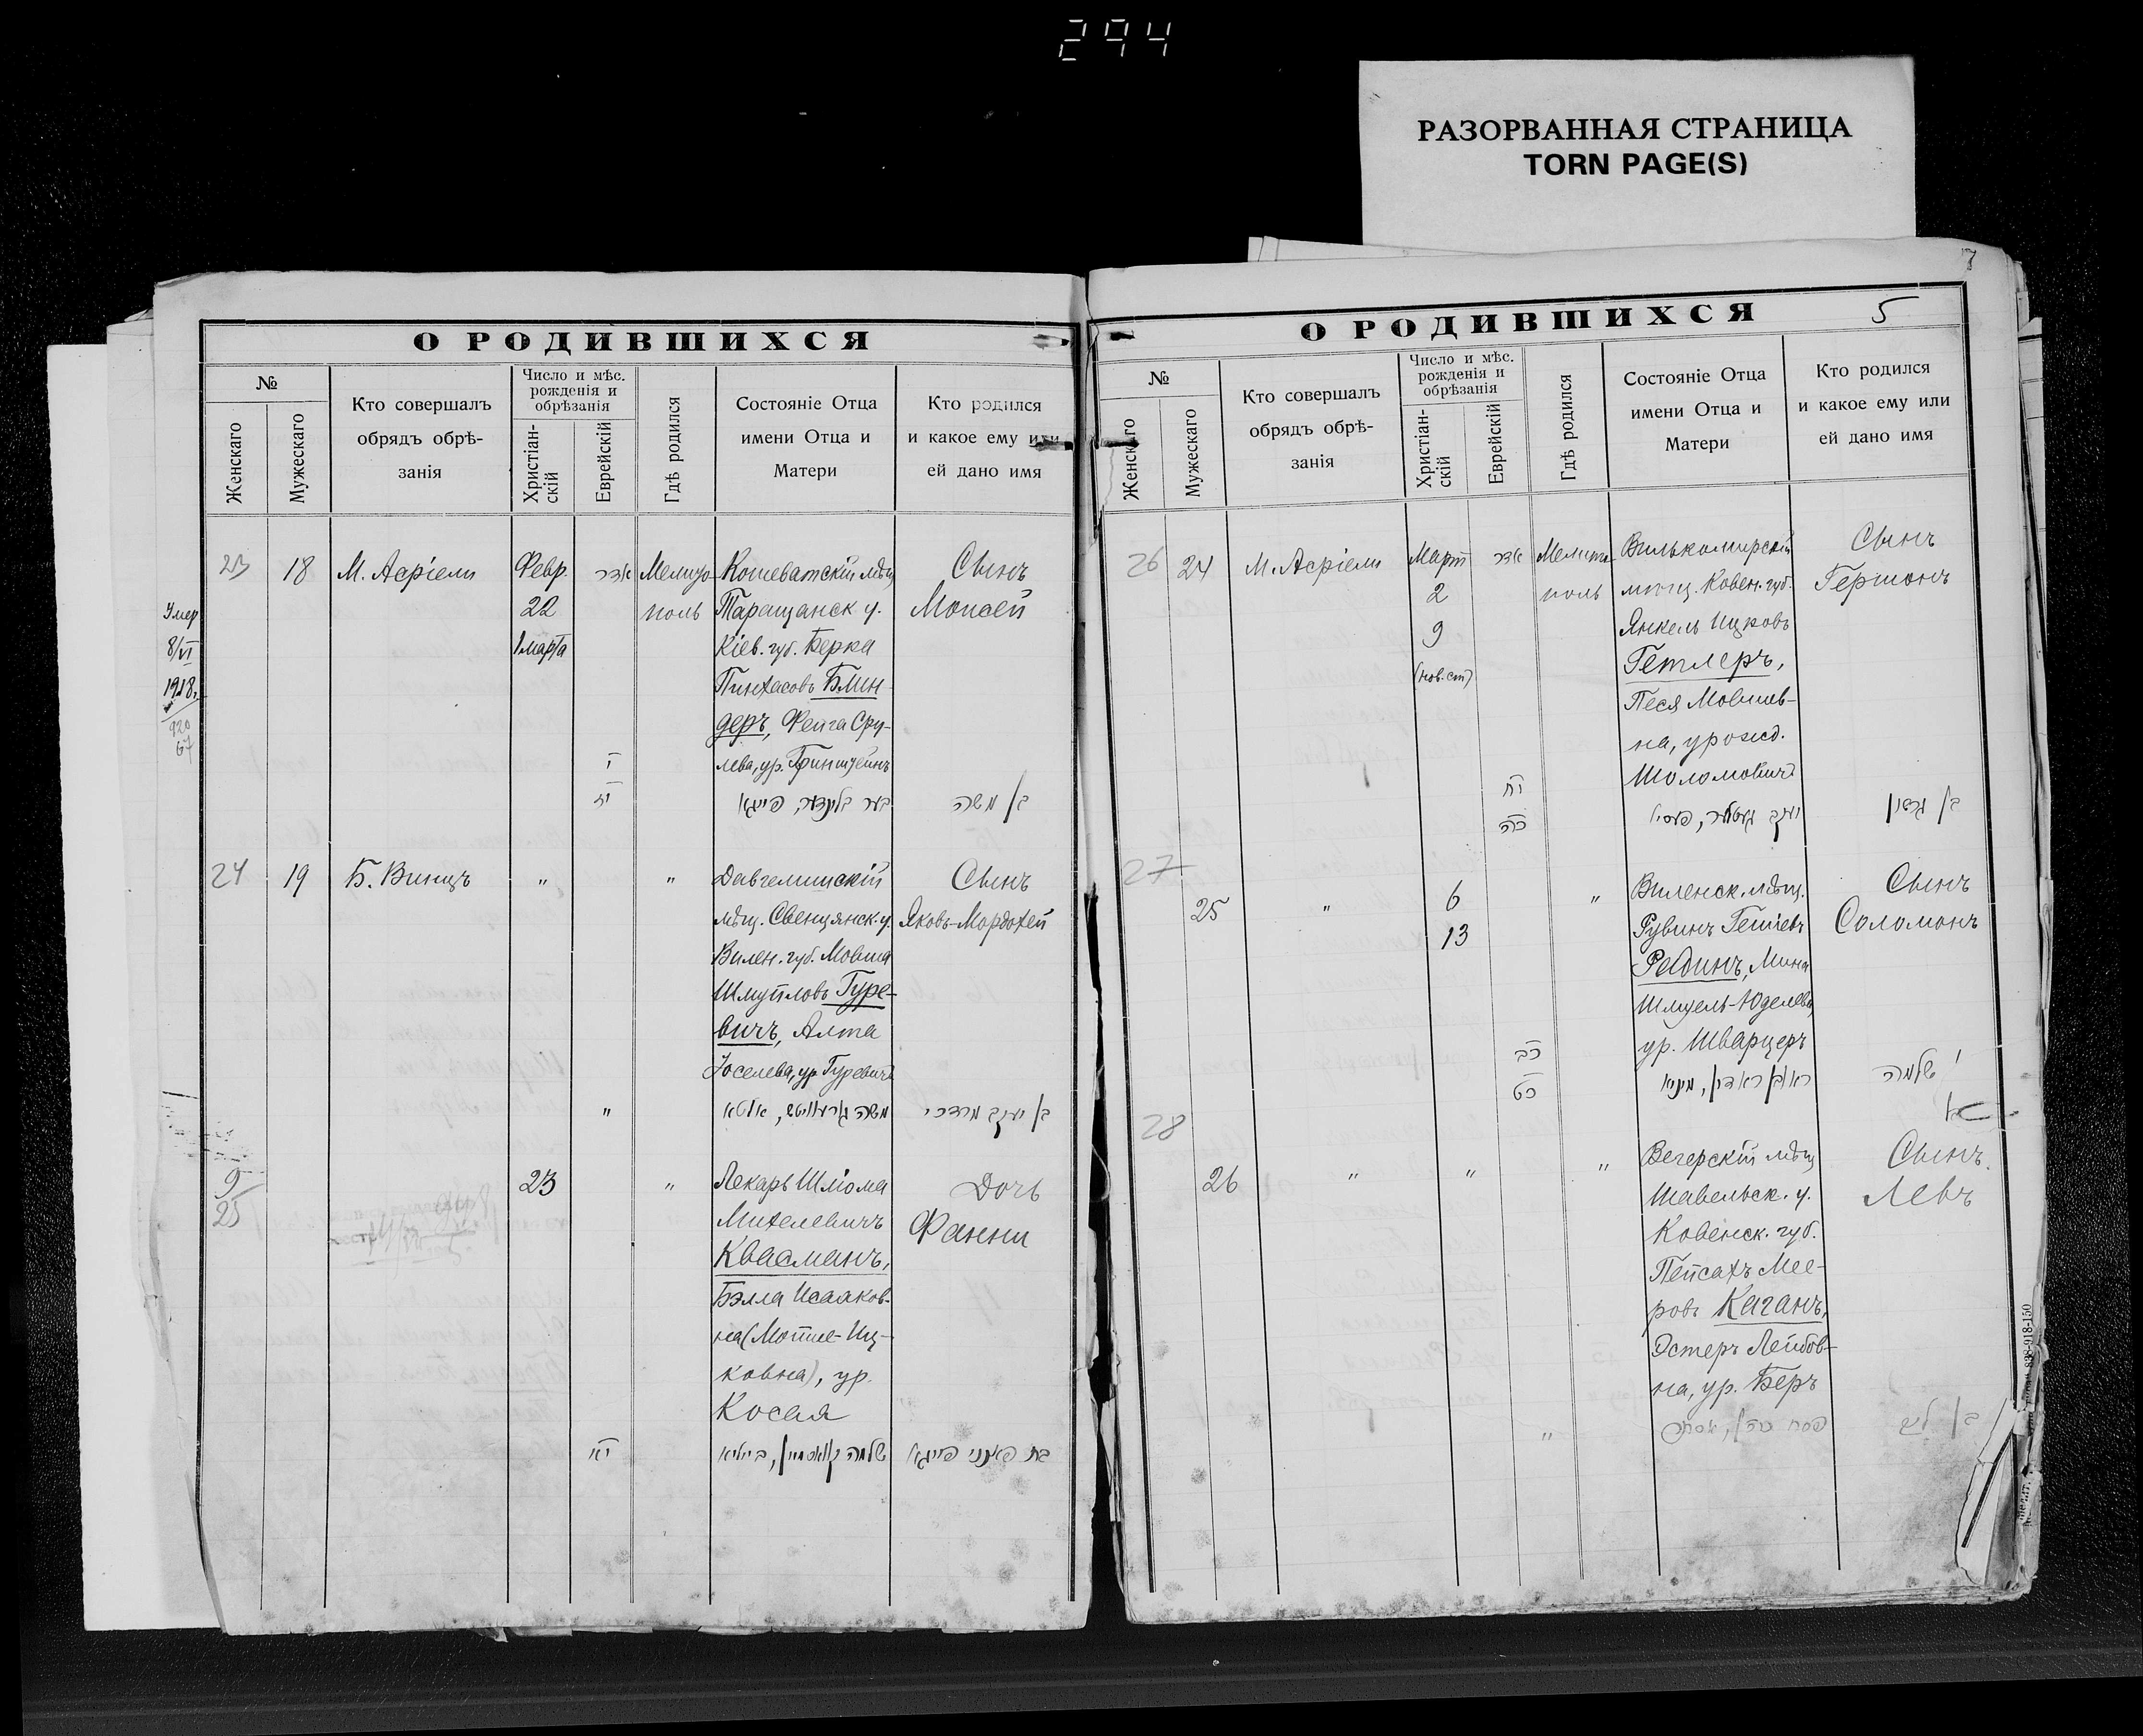 294
РАЗОРВАННАЯ СТРАНИЦА
TORN PAGE(S)
О РОДИВШИХСЯ
№
Женскаго
Мужескаго
Кто совершалъ
обрядъ обрѣ-
занія
Число и мѣс.
рожденія и
обрѣзанія
Христіан-
скій
Еврейскій
Гдѣ родился
Состояніе Отца
имени Отца и
Матери
Кто родился
и какое ему или
ей дано имя
Умер
8/VI
1918
23
18
М. Асріели
Февр.
22
1 марта
אדר
Мелито-
поль
Кошеватскій мѣщ.
Таращанск. у.
Кіев. губ. Берка
Пинхасовъ Блин-
деръ, Фейга Сру-
лева, ур. Гринштейнъ
בער בלינדער, פייגא
Сынъ
Моисей
בן משה
24
19
Б. Винцъ
"
"
Давгелишскій
мѣщ. Свенцянск. у.
Вилен. губ. Мовша
Шмуйловъ Гуре-
вичъ, Алта
Іоселева, ур. Гуревичъ
"
משה גורעוויטש, אלטא
Сынъ
Яковъ-Мордохей
בן יעקב מרדכי
9
25
23
"
Лекарь Шліома
Михелевичъ
Квасманъ,
Бэлла Исааков-
на (Мотле-Иц-
ковна), ур.
Косая
יא
שלמה קוואסמאן, ביילא
Дочь
Фанни
בת פאני פייגא
О РОДИВШИХСЯ
5
№
Женскаго
Мужескаго
Кто совершалъ
обрядъ обрѣ-
занія
Число и мѣс.
рожденія и
обрѣзанія
Христіан-
скій
Еврейскій
Гдѣ родился
Состояніе Отца
имени Отца и
Матери
Кто родился
и какое ему или
ей дано имя
26
24
М. Асріели
Март
2
9
(нов. ст)
אדר
יח
כה
Мелито-
поль
Вилькомирскій
мѣщ. Ковен. губ.
Янкель Ицковъ
Гетлеръ,
Песя Мовшев-
на, урожд.
Шоломовичъ
Сынъ
Гершонъ
בן גרשון
27
25
"
6
13
כב
כט
"
Виленск. мѣщ.
Рувинъ
Рединъ, Мина
Шмуель-Юделева,
ур. Шварцеръ
ראובן ראדין, מינא
Сынъ
Соломонъ
שלמה
28
26
"
"
"
"
Вегерскій мѣщ
Шавельск. у.
Ковенск. губ.
Пейсахъ Мее-
ровъ Каганъ,
Эстеръ Лейбов-
на, ур. Беръ
פסח כהן, אסתר
Сынъ.
Левъ